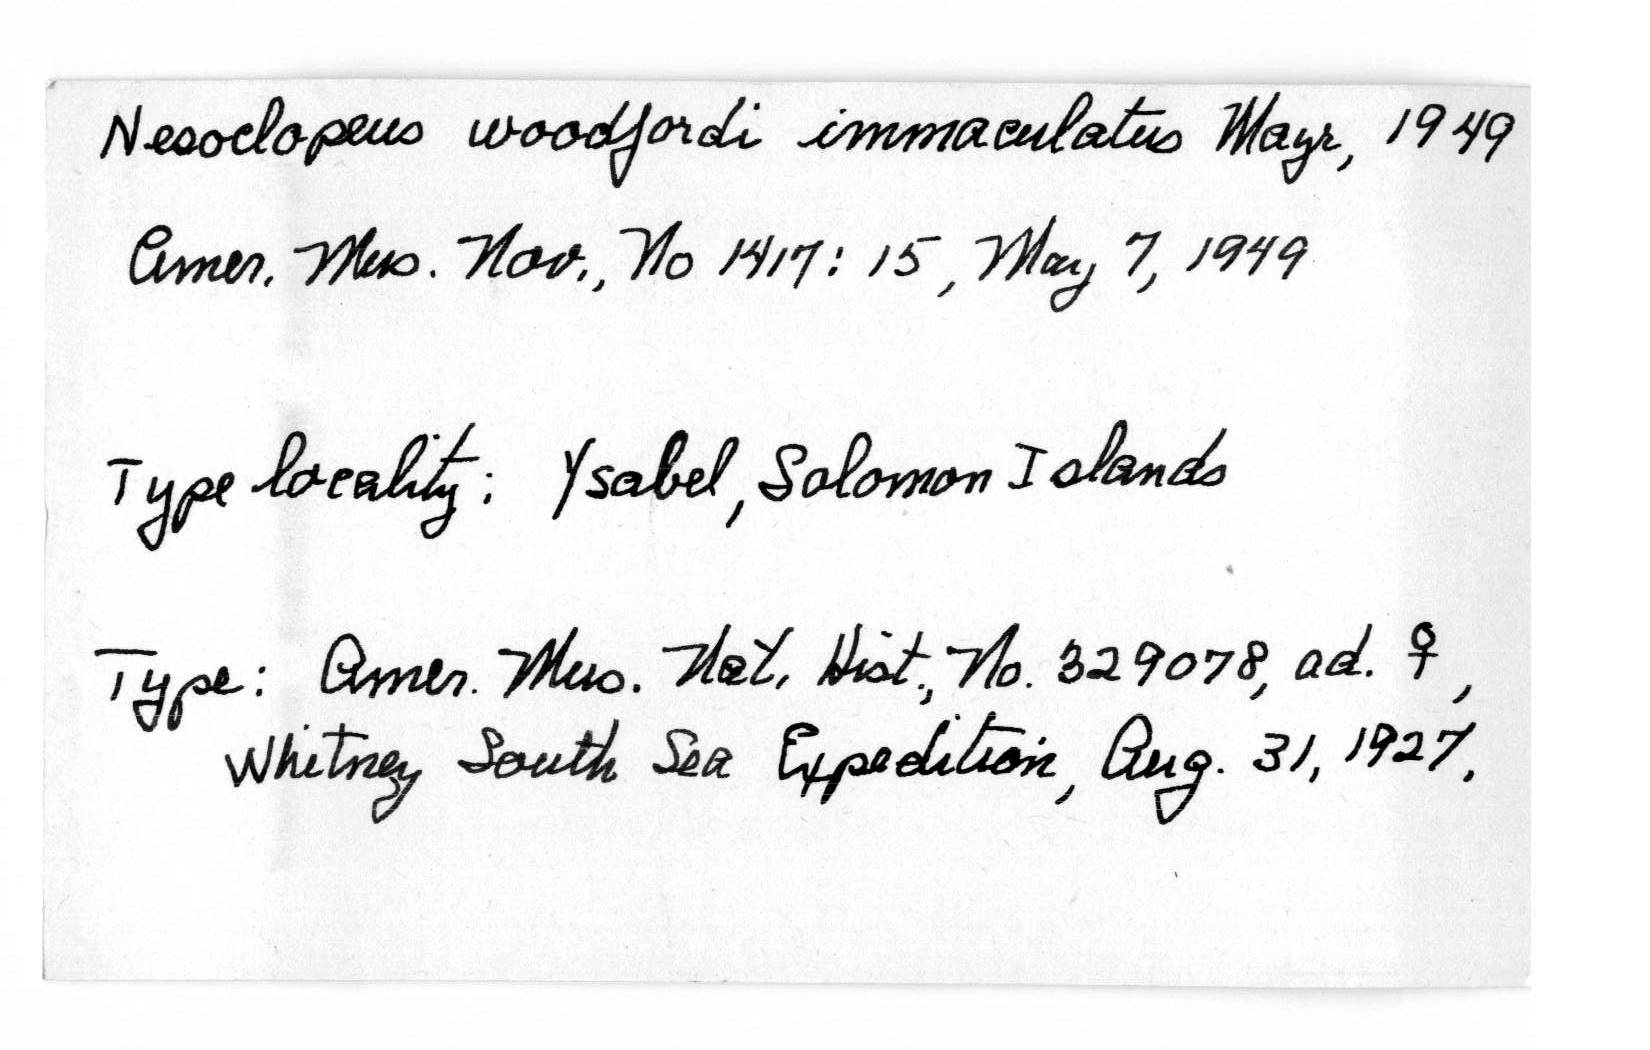 Nesoclopeus woodfordi immaculatus Mayr, 1949
Amer. Mus. Nov., No 1417: 15, May 7, 1949
Type locality: Ysabel, Solomon Islands
Type: Amer. Mus. Nat. Hist., No. 329078, ad. ♀,
Whitney South Sea Expedition, Aug. 31, 1927.